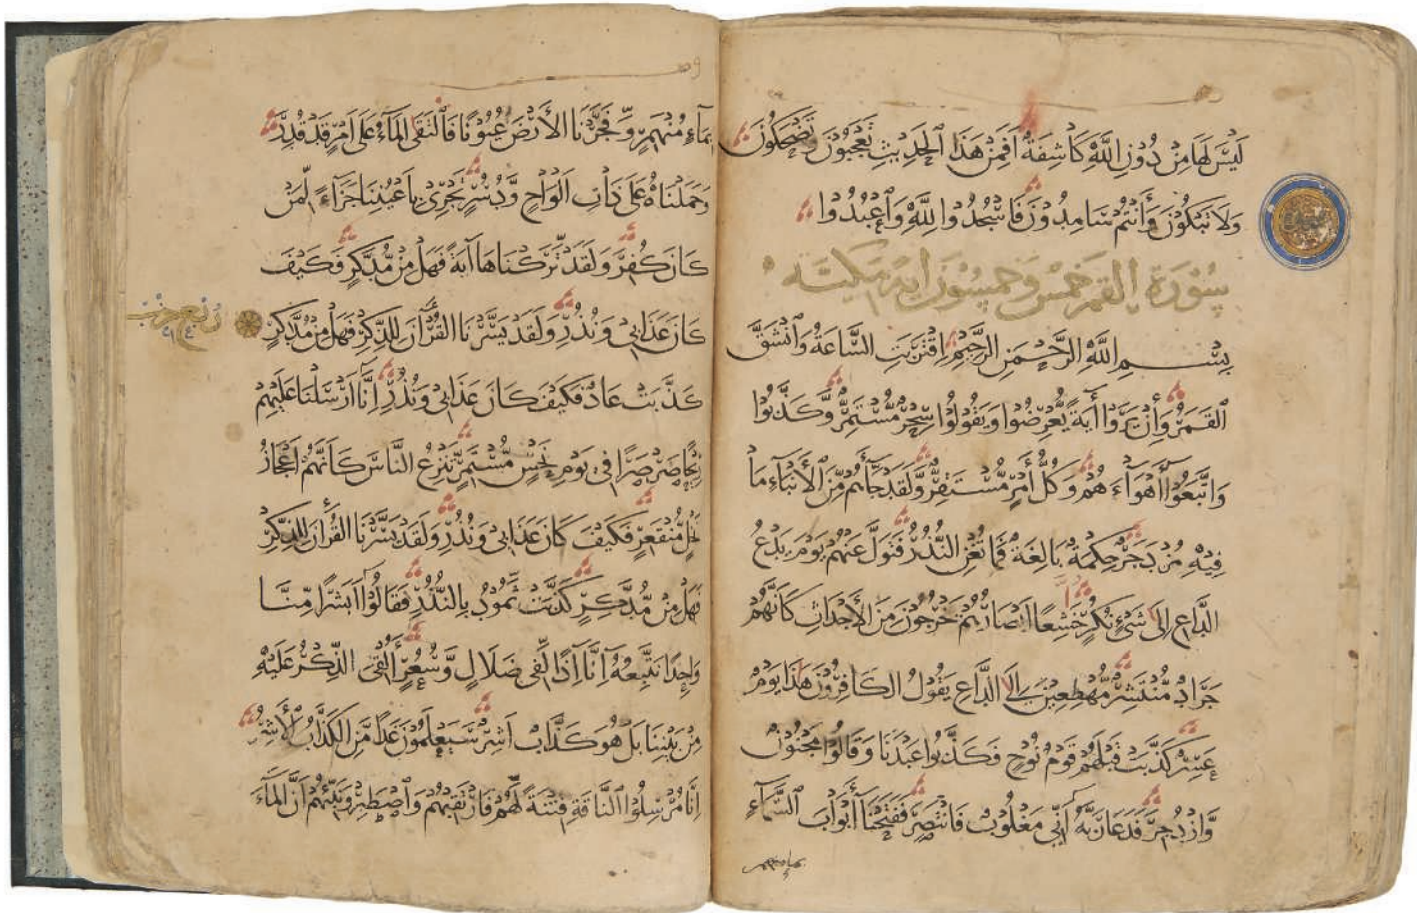 لَيْسَ لَهَا مِنْ دُونِ اللَّهِ كَاشِفَةٌ أَفَمِنْ هَذَا الْحَدِيثِ تَعْجَبُونَ وَتَضْحَكُونَ
وَلَا تَبْكُونَ وَأَنْتُمْ سَامِدُونَ فَاسْجُدُوا لِلَّهِ وَاعْبُدُوا
سُورَة القمر خمس وخمسون اية مكية
بِسْمِ اللَّهِ الرَّحْمَنِ الرَّحِيمِ اقْتَرَبَتِ السَّاعَةُ وَانْشَقَّ
الْقَمَرُ وَإِنْ يَرَوْا آيَةً يُعْرِضُوا وَيَقُولُوا سِحْرٌ مُسْتَمِرٌّ وَكَذَّبُوا
وَاتَّبَعُوا أَهْوَاءَهُمْ وَكُلُّ أَمْرٍ مُسْتَقِرٌّ وَلَقَدْ جَاءَهُمْ مِنَ الْأَنْبَاءِ مَا
فِيهِ مُزْدَجَرٌ حِكْمَةٌ بَالِغَةٌ فَمَا تُغْنِ النُّذُرُ فَتَوَلَّ عَنْهُمْ يَوْمَ يَدْعُ
الدَّاعِ إِلَى شَيْءٍ نُكُرٍ خُشَّعًا أَبْصَارُهُمْ يَخْرُجُونَ مِنَ الْأَجْدَاثِ كَأَنَّهُمْ
جَرَادٌ مُنْتَشِرٌ مُهْطِعِينَ إِلَى الدَّاعِ يَقُولُ الْكَافِرُونَ هَذَا يَوْمٌ
عَسِرٌ كَذَّبَتْ قَبْلَهُمْ قَوْمُ نُوحٍ فَكَذَّبُوا عَبْدَنَا وَقَالُوا مَجْنُونٌ
وَازْدُجِرَ فَدَعَا رَبَّهُ أَنِّي مَغْلُوبٌ فَانْتَصِرْ فَفَتَحْنَا أَبْوَابَ السَّمَاءِ
بماء منهمر
بِمَاءٍ مُنْهَمِرٍ وَفَجَّرْنَا الْأَرْضَ عُيُونًا فَالْتَقَى الْمَاءُ عَلَى أَمْرٍ قَدْ قُدِرَ
وَحَمَلْنَاهُ عَلَى ذَاتِ أَلْوَاحٍ وَدُسُرٍ تَجْرِي بِأَعْيُنِنَا جَزَاءً لِمَنْ
كَانَ كُفِرَ وَلَقَدْ تَرَكْنَاهَا آيَةً فَهَلْ مِنْ مُدَّكِرٍ فَكَيْفَ
كَانَ عَذَابِي وَنُذُرِ وَلَقَدْ يَسَّرْنَا الْقُرْآنَ لِلذِّكْرِ فَهَلْ مِنْ مُدَّكِرٍ
ربع حزب
كَذَّبَتْ عَادٌ فَكَيْفَ كَانَ عَذَابِي وَنُذُرِ إِنَّا أَرْسَلْنَا عَلَيْهِمْ
رِيحًا صَرْصَرًا فِي يَوْمِ نَحْسٍ مُسْتَمِرٍّ تَنْزِعُ النَّاسَ كَأَنَّهُمْ أَعْجَازُ
نَخْلٍ مُنْقَعِرٍ فَكَيْفَ كَانَ عَذَابِي وَنُذُرِ وَلَقَدْ يَسَّرْنَا الْقُرْآنَ لِلذِّكْرِ
فَهَلْ مِنْ مُدَّكِرٍ كَذَّبَتْ ثَمُودُ بِالنُّذُرِ فَقَالُوا أَبَشَرًا مِنَّا
وَاحِدًا نَتَّبِعُهُ إِنَّا إِذًا لَفِي ضَلَالٍ وَسُعُرٍ أَأُلْقِيَ الذِّكْرُ عَلَيْهِ
مِنْ بَيْنِنَا بَلْ هُوَ كَذَّابٌ أَشِرٌ سَيَعْلَمُونَ غَدًا مَنِ الْكَذَّابُ الْأَشِرُ
إِنَّا مُرْسِلُوا النَّاقَةِ فِتْنَةً لَهُمْ فَارْتَقِبْهُمْ وَاصْطَبِرْ وَنَبِّئْهُمْ أَنَّ الْمَاءَ